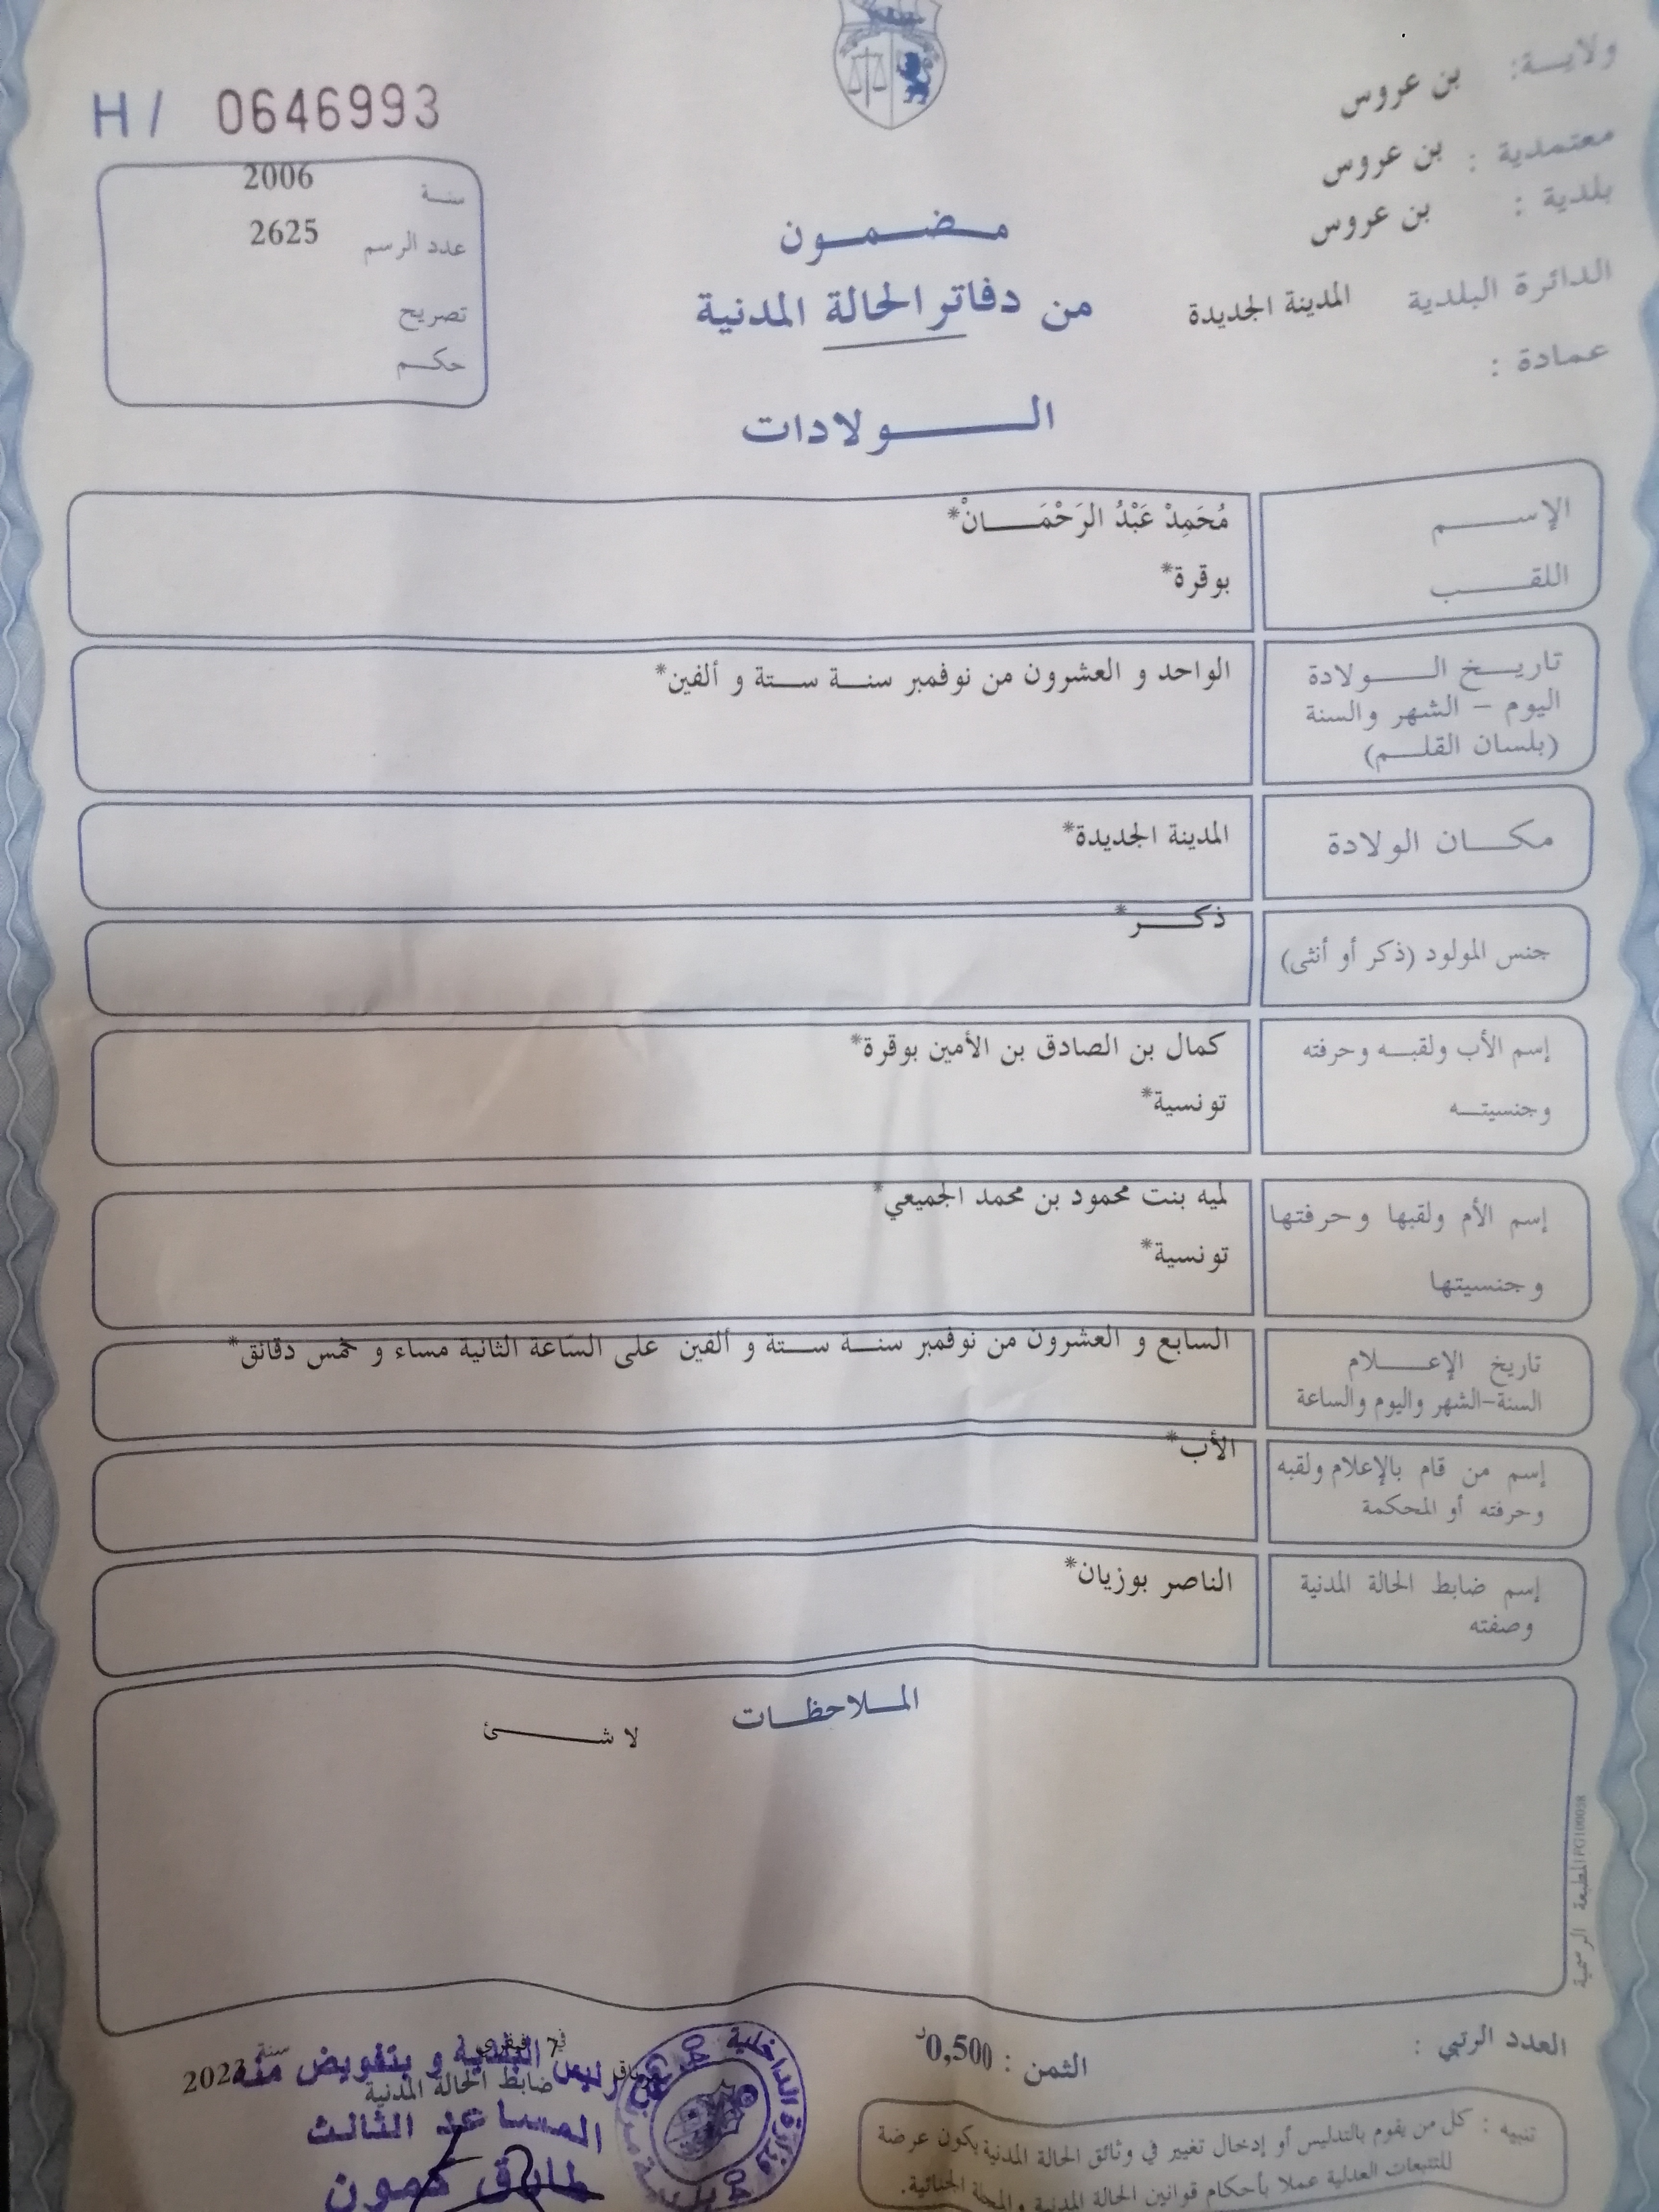 ولايـــة: بن عروس
معتمدية : بن عروس
بلدية : بن عروس
الدائرة البلدية المدينة الجديدة
عمادة :
H / 0646993
سنـــة 2006
عدد الرسم 2625
تصريح
حكـــم
مـــضـــمـــون
من دفاتر الحالة المدنية
الـــــولادات
الإســـــم مُحَمِدْ عَبْدُ الرَحْمَـــــانْ*
اللقـــــب بوقرة*
تاريـــخ الـــــولادة الواحد و العشرون من نوفمبر سنـــة ستـــة و ألفين*
اليوم – الشهر والسنة
(بلسان القلـــم)
مكـــــان الولادة المدينة الجديدة*
جنس المولود (ذكر أو أنثى) ذكـــــر*
إسم الأب ولقبـــه وحرفته كمال بن الصادق بن الأمين بوقرة*
وجنسيتـــه تونسية*
إسم الأم ولقبها وحرفتها لميه بنت محمود بن محمد الجميعي*
وجنسيتها تونسية*
تاريخ الإعـــــلام السابع و العشرون من نوفمبر سنـــة ستـــة و ألفين على السّاعة الثانية مساء و خمس دقائق*
السنة-الشهر واليوم والساعة
إسم من قام بالإعلام ولقبه الأب*
وحرفته أو المحكمة
إسم ضابط الحالة المدنية الناصر بوزيان*
وصفته
المـــلاحظـــات
لا شـــــئ
المطبعة الرسمية PG100038
العدد الرتبي :
الثمن : 0,500د
تنبيه : كل من يقوم بالتدليس أو إدخال تغيير في وثائق الحالة المدنية يكون عرضة
للتتبعات العدلية عملا بأحكام قوانين الحالة المدنية والمجلة الجنائية.
7 سنة
رئيس البلدية و بتفويض منه
ضابط الحالة المدنية
المساعد الثالث
طارق كمون
وزارة الداخلية